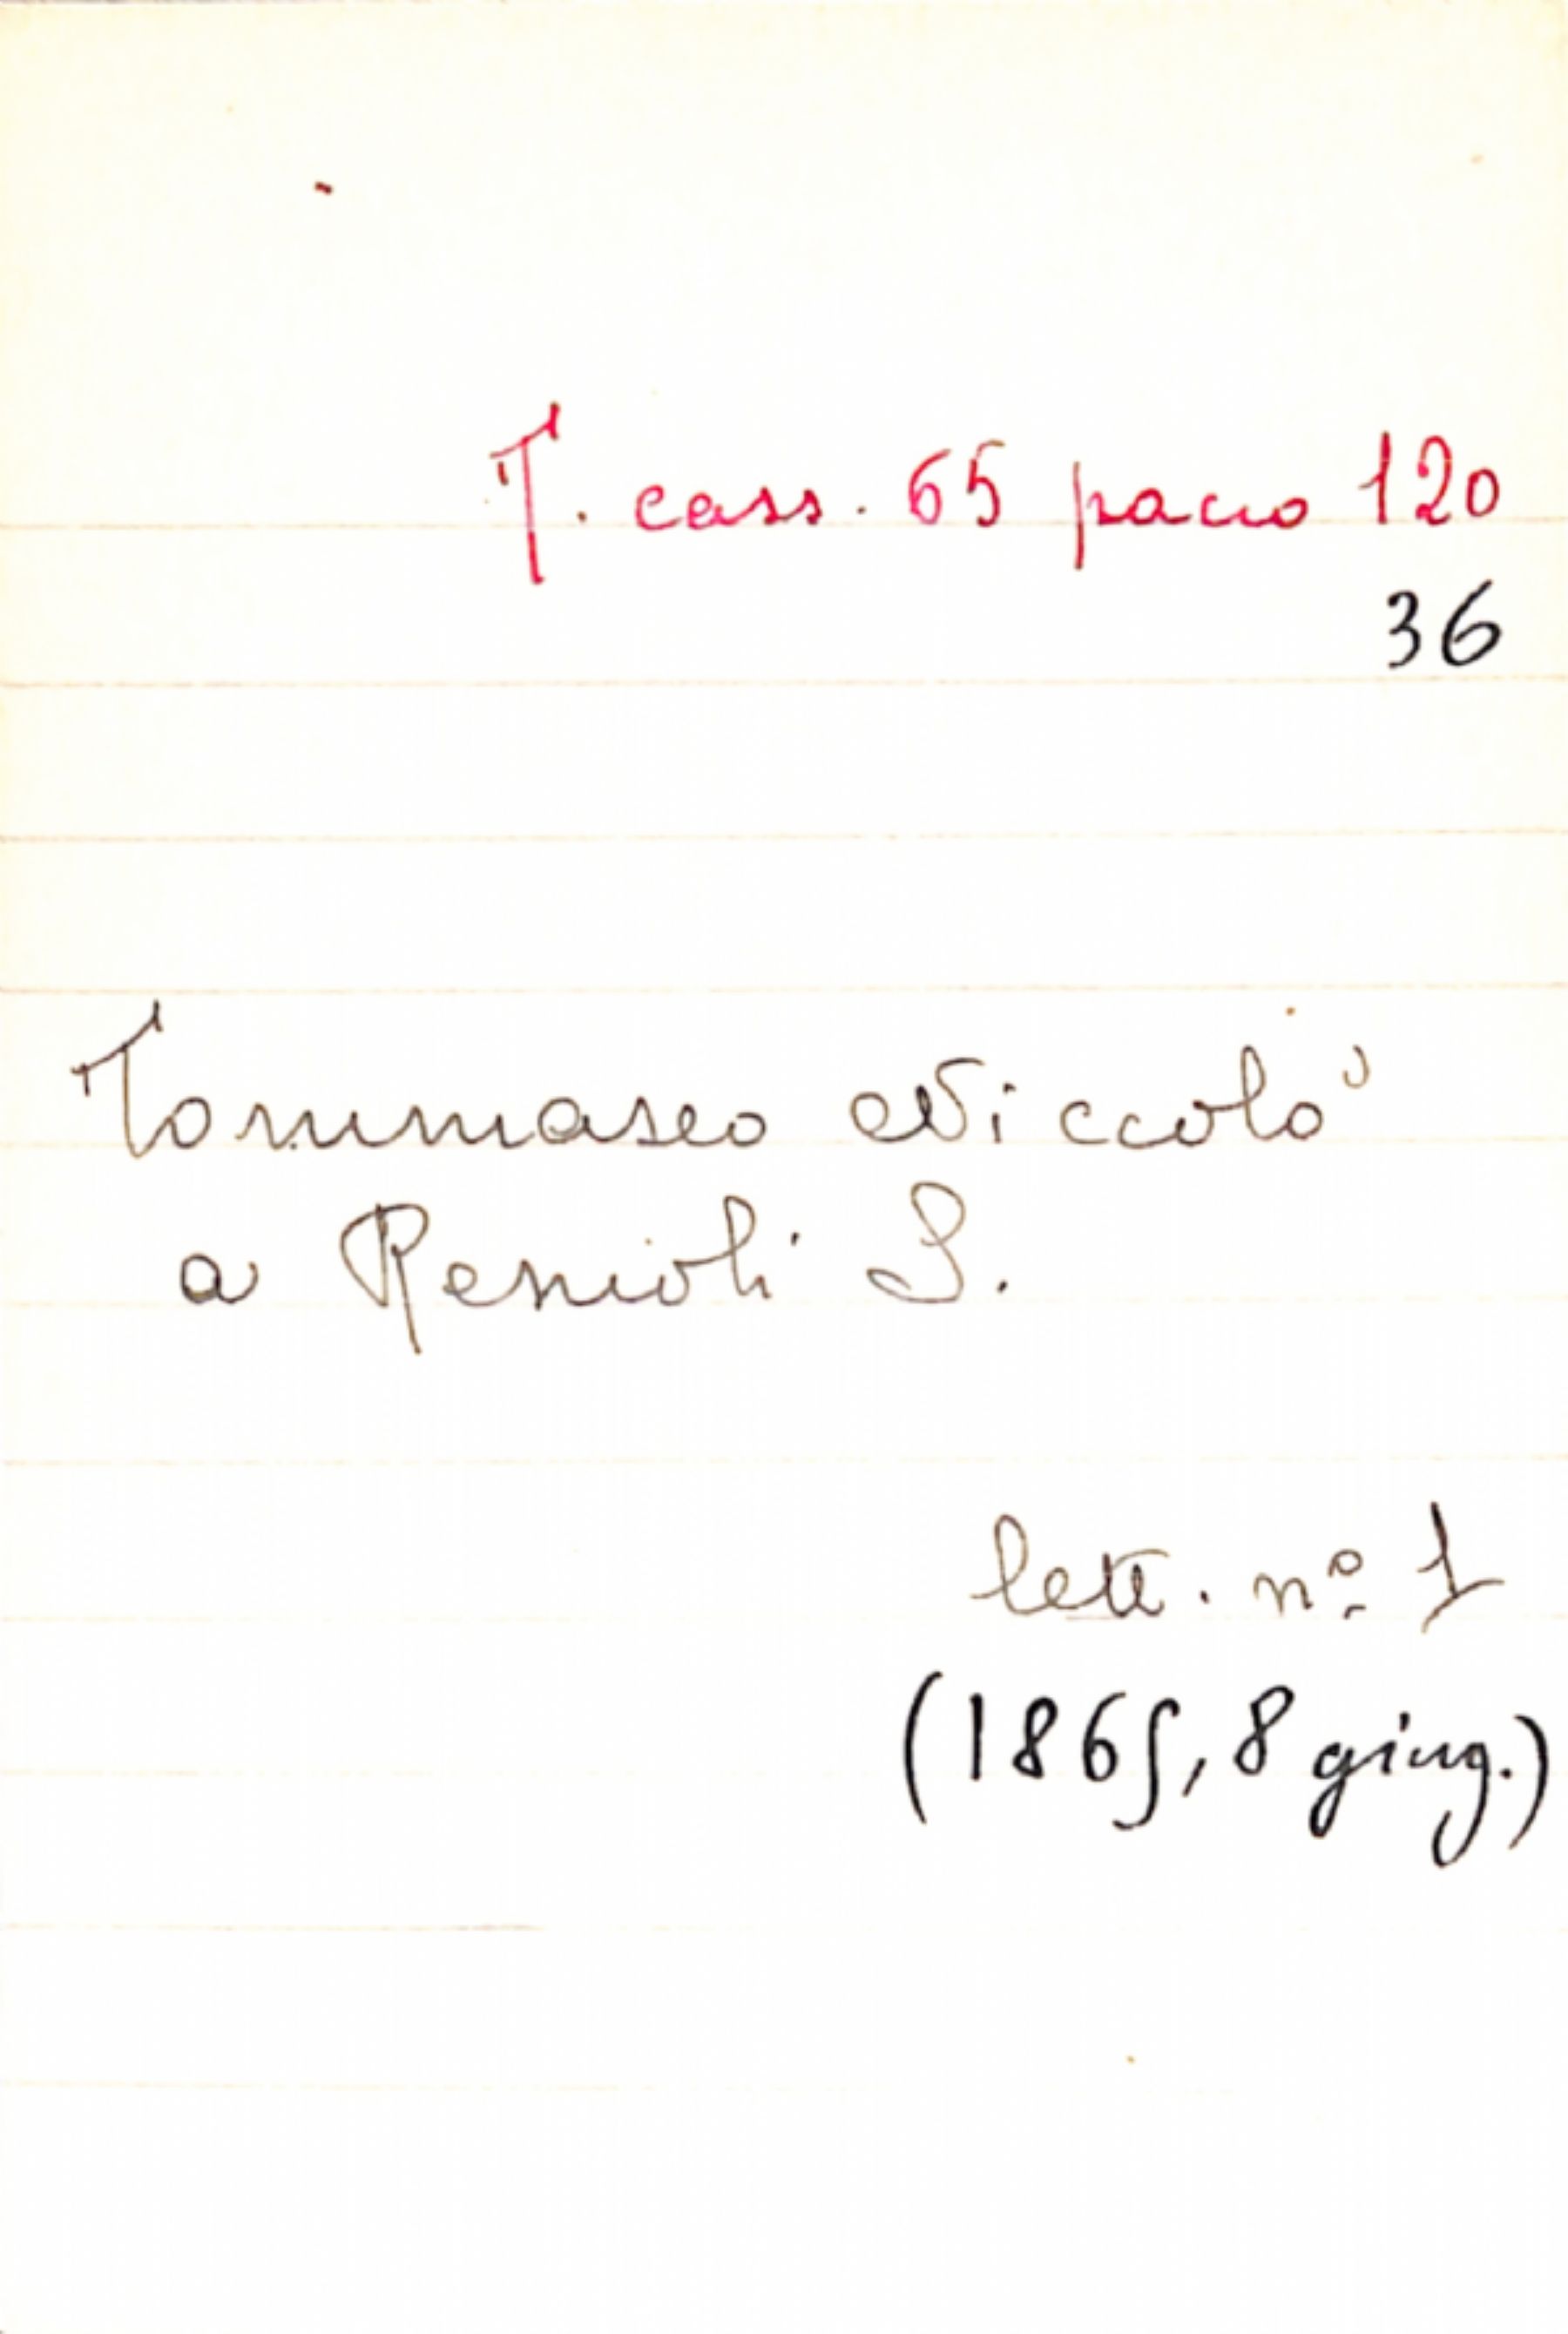 T. cass. 65 pacco 120
36
Tommaseo Niccolò
a Renioli S.
lett. nº 1
(1865, 8 giug.)